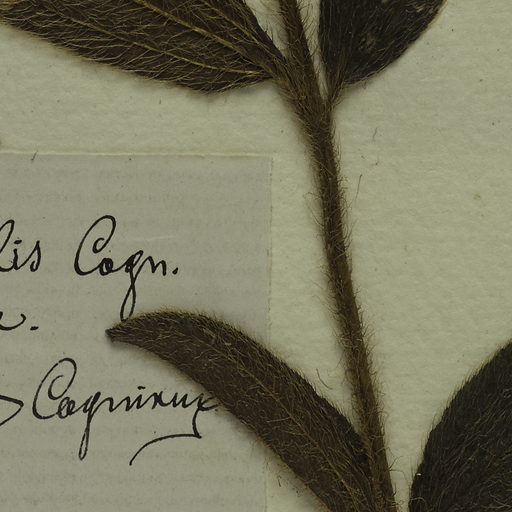 lis Cogn.
Cogniaux